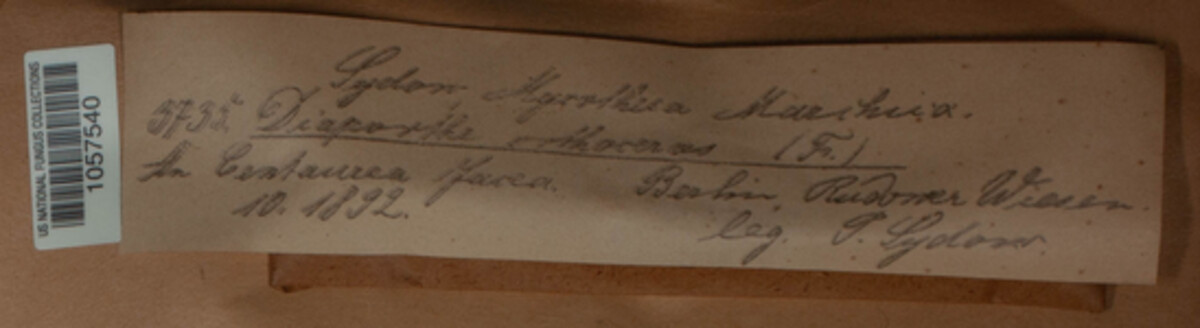 US NATIONAL FUNGUS COLLECTIONS
1057540
Sydow Mycotheca Marchica.
3735. Diaporthe orthoceras (Fr.)
An Centaurea Jacea. Berlin, Rudower Wiesen.
10. 1892. leg. P. Sydow.